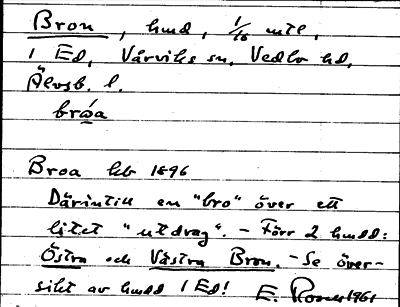 Bron, hmd, 1/16 mtl,
1 Ed, Vårviks sn, Vedbo hd,
Älvsb. l.
bróa
Broa hb 1896
Därintill en "bro" över ett
litet "utdrag". - Förr 2 hmdd:
Östra och Västra Bron. - Se över-
sikt av hmdd 1 Ed! E. Rosell 1961